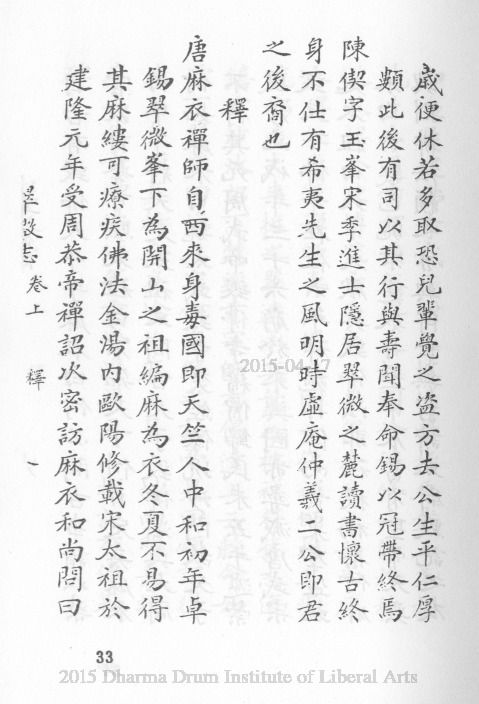 歲便休若多取恐兒輩覺之盗方去公生平仁厚
類此後有司以其行與壽聞奉命錫以冠帶終焉
陳偰字玉峯宋季進士隱居翠微之麓讀書懷古終
身不仕有希夷先生之風明時虛庵仲義二公即君
之後裔也
釋
唐麻衣禪師自西來身毒國即天竺人中和初年卓
錫翠微峯下為開山之祖編麻為衣冬夏不易得
其麻縷可療疾佛法金湯內歐陽修載宋太祖於
建隆元年受周恭帝禪詔次密訪麻衣和尚問曰
志 卷上 釋 一
2015-04-17
33
2015 Dharma Drum Institute of Liberal Arts